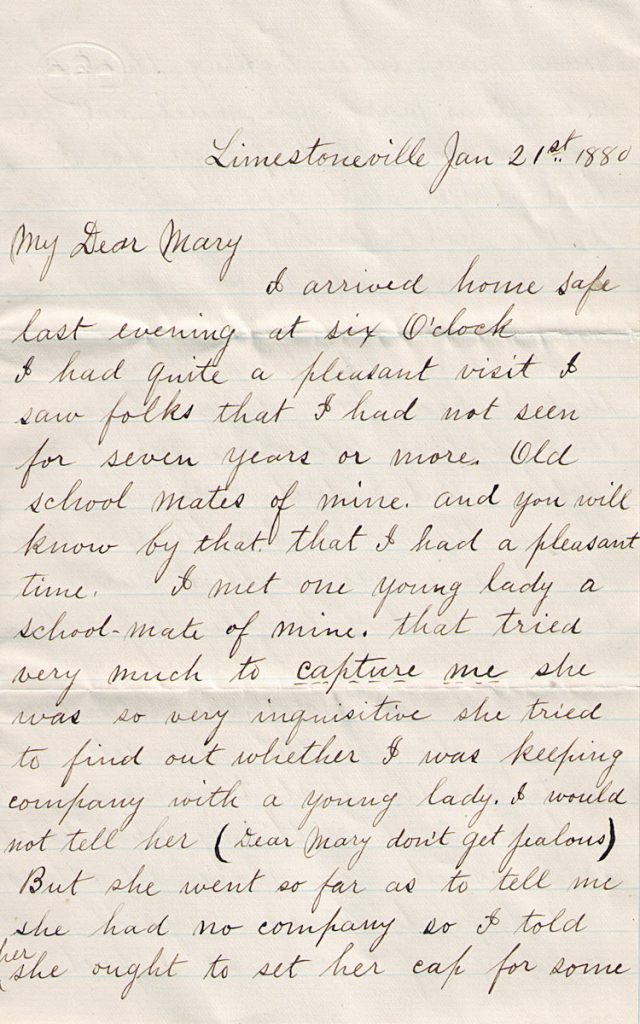 Limestoneville Jan 21st. 1880
My Dear Mary
I arrived home safe
last evening at six O'clock
I had quite a pleasant visit I
saw folks that I had not seen
for seven years or more. Old
school mates of mine. and you will
know by that. that I had a pleasant
time. I met one young lady a
school-mate of mine. that tried
very much to capture me she
was so very inquisitive she tried
to find out whether I was keeping
company with a young lady. I would
not tell her (Dear Mary don't get jealous)
But she went so far as to tell me
she had no company so I told
her
she ought to set her cap for some